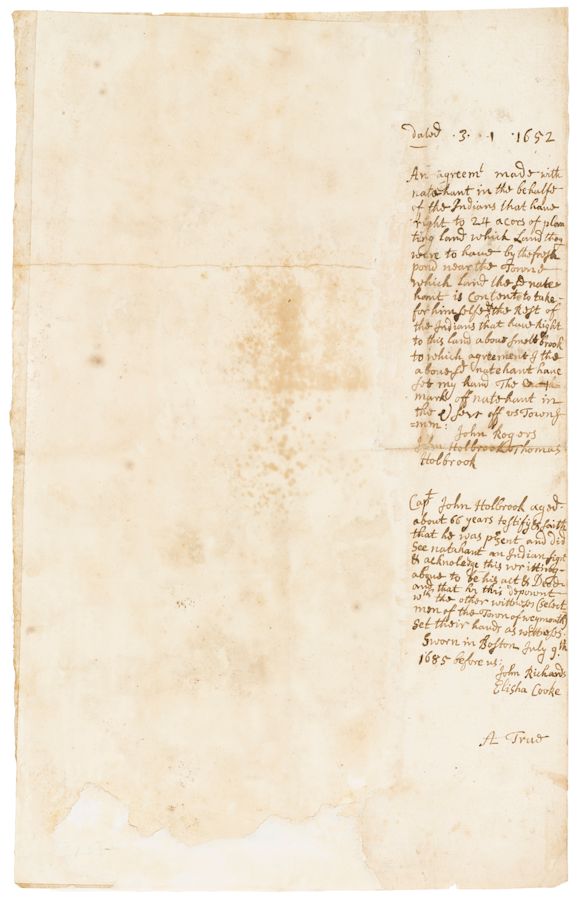 dated .3. .1 .1652
An agreemt made with
natehant in the behalfe
of the Indians that have
right to 24 acors of plan
ting land which Land they
were to have by the fresh
pond near the Towne
which Land the sd nate
hant is Contente to take
for himselfe & the Rest of
the Indians that have Right
to this land above smelt brook
to which agreement I the
above sd natehant have
set my hand The
mark off natehant in
the off us Towns
=mm: John Rogers
John Holbrook Thomas
Holbrook
Capt John Holbrook aged
about 66 years testifyth & saith
that he was psent and did
see natahant an Indian sign
& acknolege this writting
above to be his act & Deed
and that he this deponent
wth the other witneses (select
men of the Town of weymouth)
set their hands as witneses.
Sworn in Boston July 9th
1685 before us:
John Richards
Elisha Cooke
A True